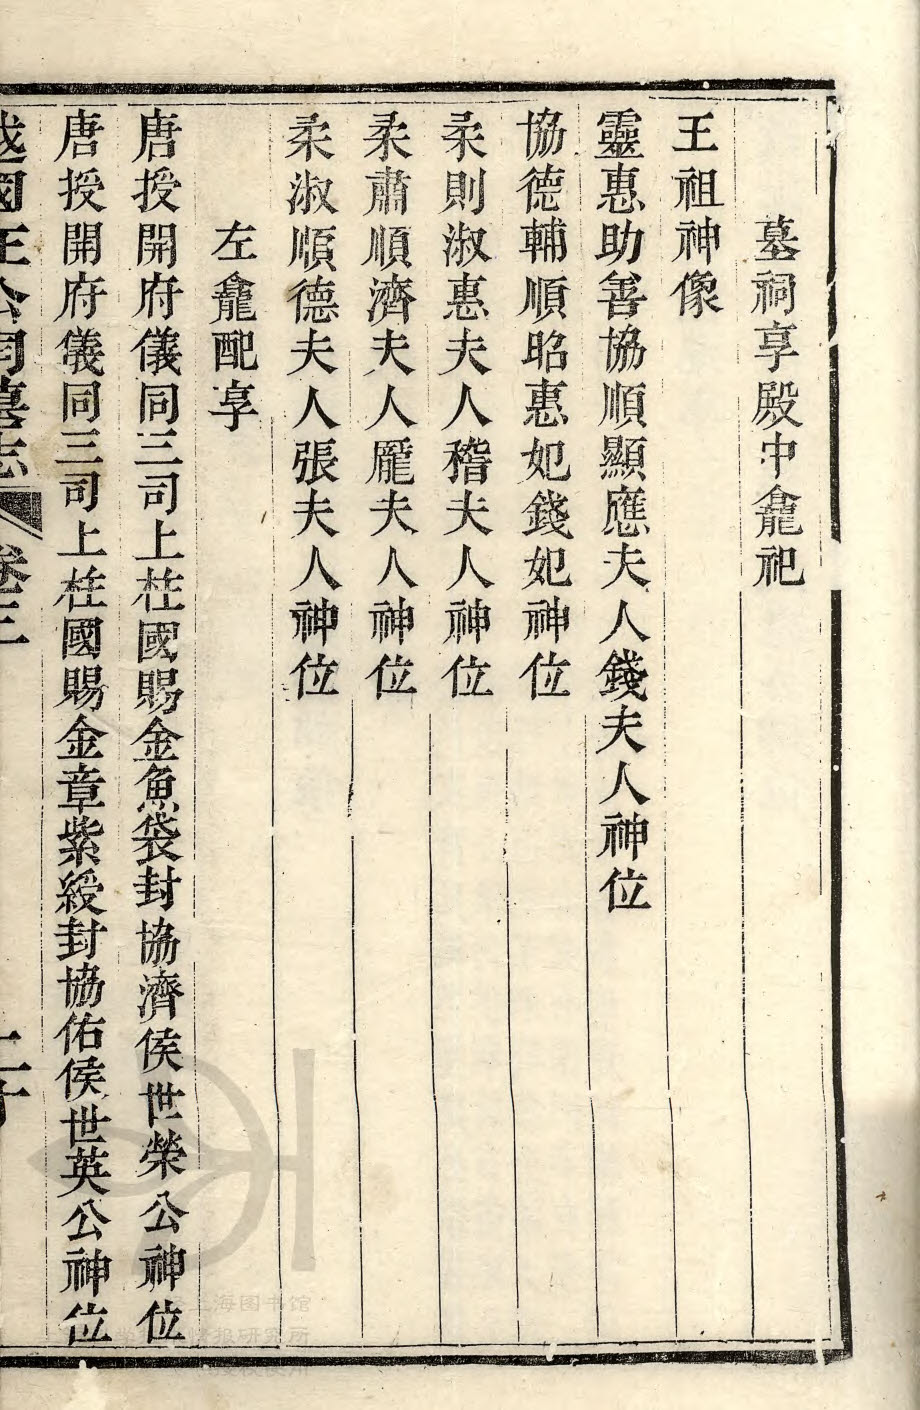 墓祠享殿中龕祀
王祖神像
靈惠助善協順顯應夫人錢夫人神位
協德輔順昭惠妃錢妃神位
柔則淑惠夫人稽夫人神位
柔肅順濟夫人龐夫人神位
柔淑順德夫人張夫人神位
左龕配享
唐授開府儀同三司上柱國賜金魚袋封協濟侯世榮公神位
唐授開府儀同三司上柱國賜金章紫綬封協佑侯世英公神位
越國王公祠墓志 卷三
上海图书馆